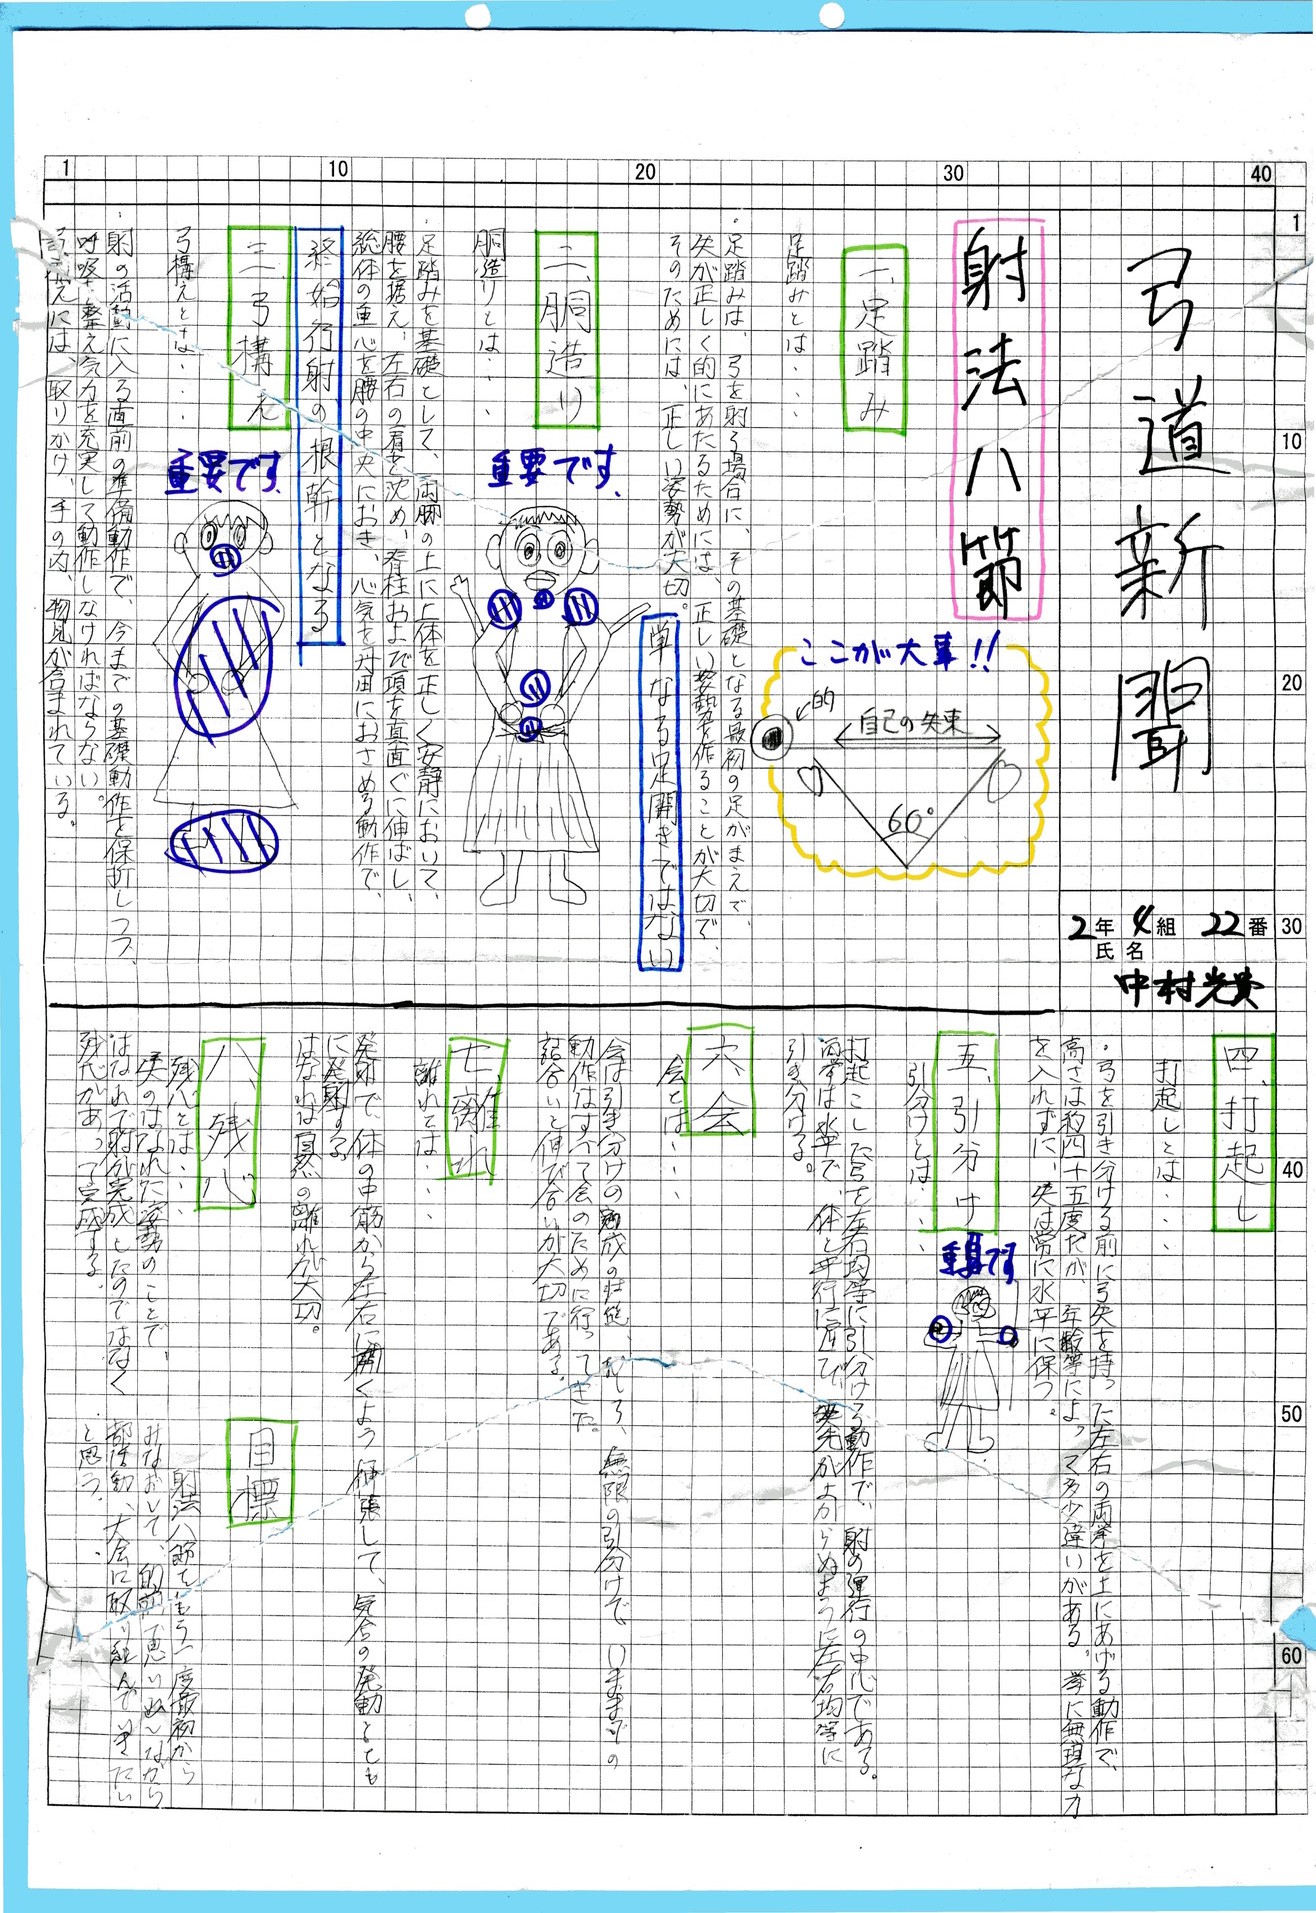 弓道新聞
2年4組22番
氏名
中村光貴
射法八節
一、足踏み
足踏みとは・・・・
・足踏みは、弓を射る場合に、その基礎となる最初の足がまえで、
矢が正しく的にあたるためには、正しい姿勢を作ることが大切で、
そのためには、正しい姿勢が大切。
単なる足開きではない
ここが大事!!
的
自己の矢束
60°
二、胴造り
胴造りとは・・・・
・足踏みを基礎として、両脚の上に上体を正しく安静において、
腰を据え、左右の肩を沈め、脊柱および項を真直ぐに伸ばし、
総体の重心を腰の中央におき、心気を丹田におさめる動作で、
終始行射の根幹となる
重要です。
三、弓構え
弓構えとは・・・・
・射の活動に入る直前の準備動作で、今までの基礎動作を保折しつつ、
呼吸を整え気力を充実して動作しなければならない。
弓構えには、取りかけ、手の内、物見が含まれている。
重要です。
四、打起し
打起しとは・・・・
・弓を引き分ける前に弓矢を持った左右の両拳を上にあげる動作で、
高さは約四十五度だが、年齢等によって多少違いがある。拳に無理な力
を入れずに、矢は常に水平に保つ。
五、引分け
引分けとは・・・・
打起こした弓を左右均等に引分ける動作で、射の運行の中心である。
両拳は水平で、体と平行に運び、矢先が上がらぬように左右均等に
引き分ける。
重要です
六、会
会とは・・・・
会は引き分けの熟成の状態、むしろ、無限の引分けで、いままでの
動作はすべて会のために行ってきた。
詰合いと伸び合いが大切である。
七、離れ
離れとは・・・・
発射で、体の中筋から左右に開くよう伸張して、気合の発動ととも
に発射する。
はなれは自然の離れが大切。
八、残心
残心とは・・・・
矢のはなれた姿勢のことで、
はなれで射が完成したのではなく
残心があって完成する。
目標
射法八節をもう一度最初から
みなおして、的前で思いぬしながら
部活動、大会に取り組んでいきたい
と思う。
1
10
20
30
40
1
10
20
30
40
50
60